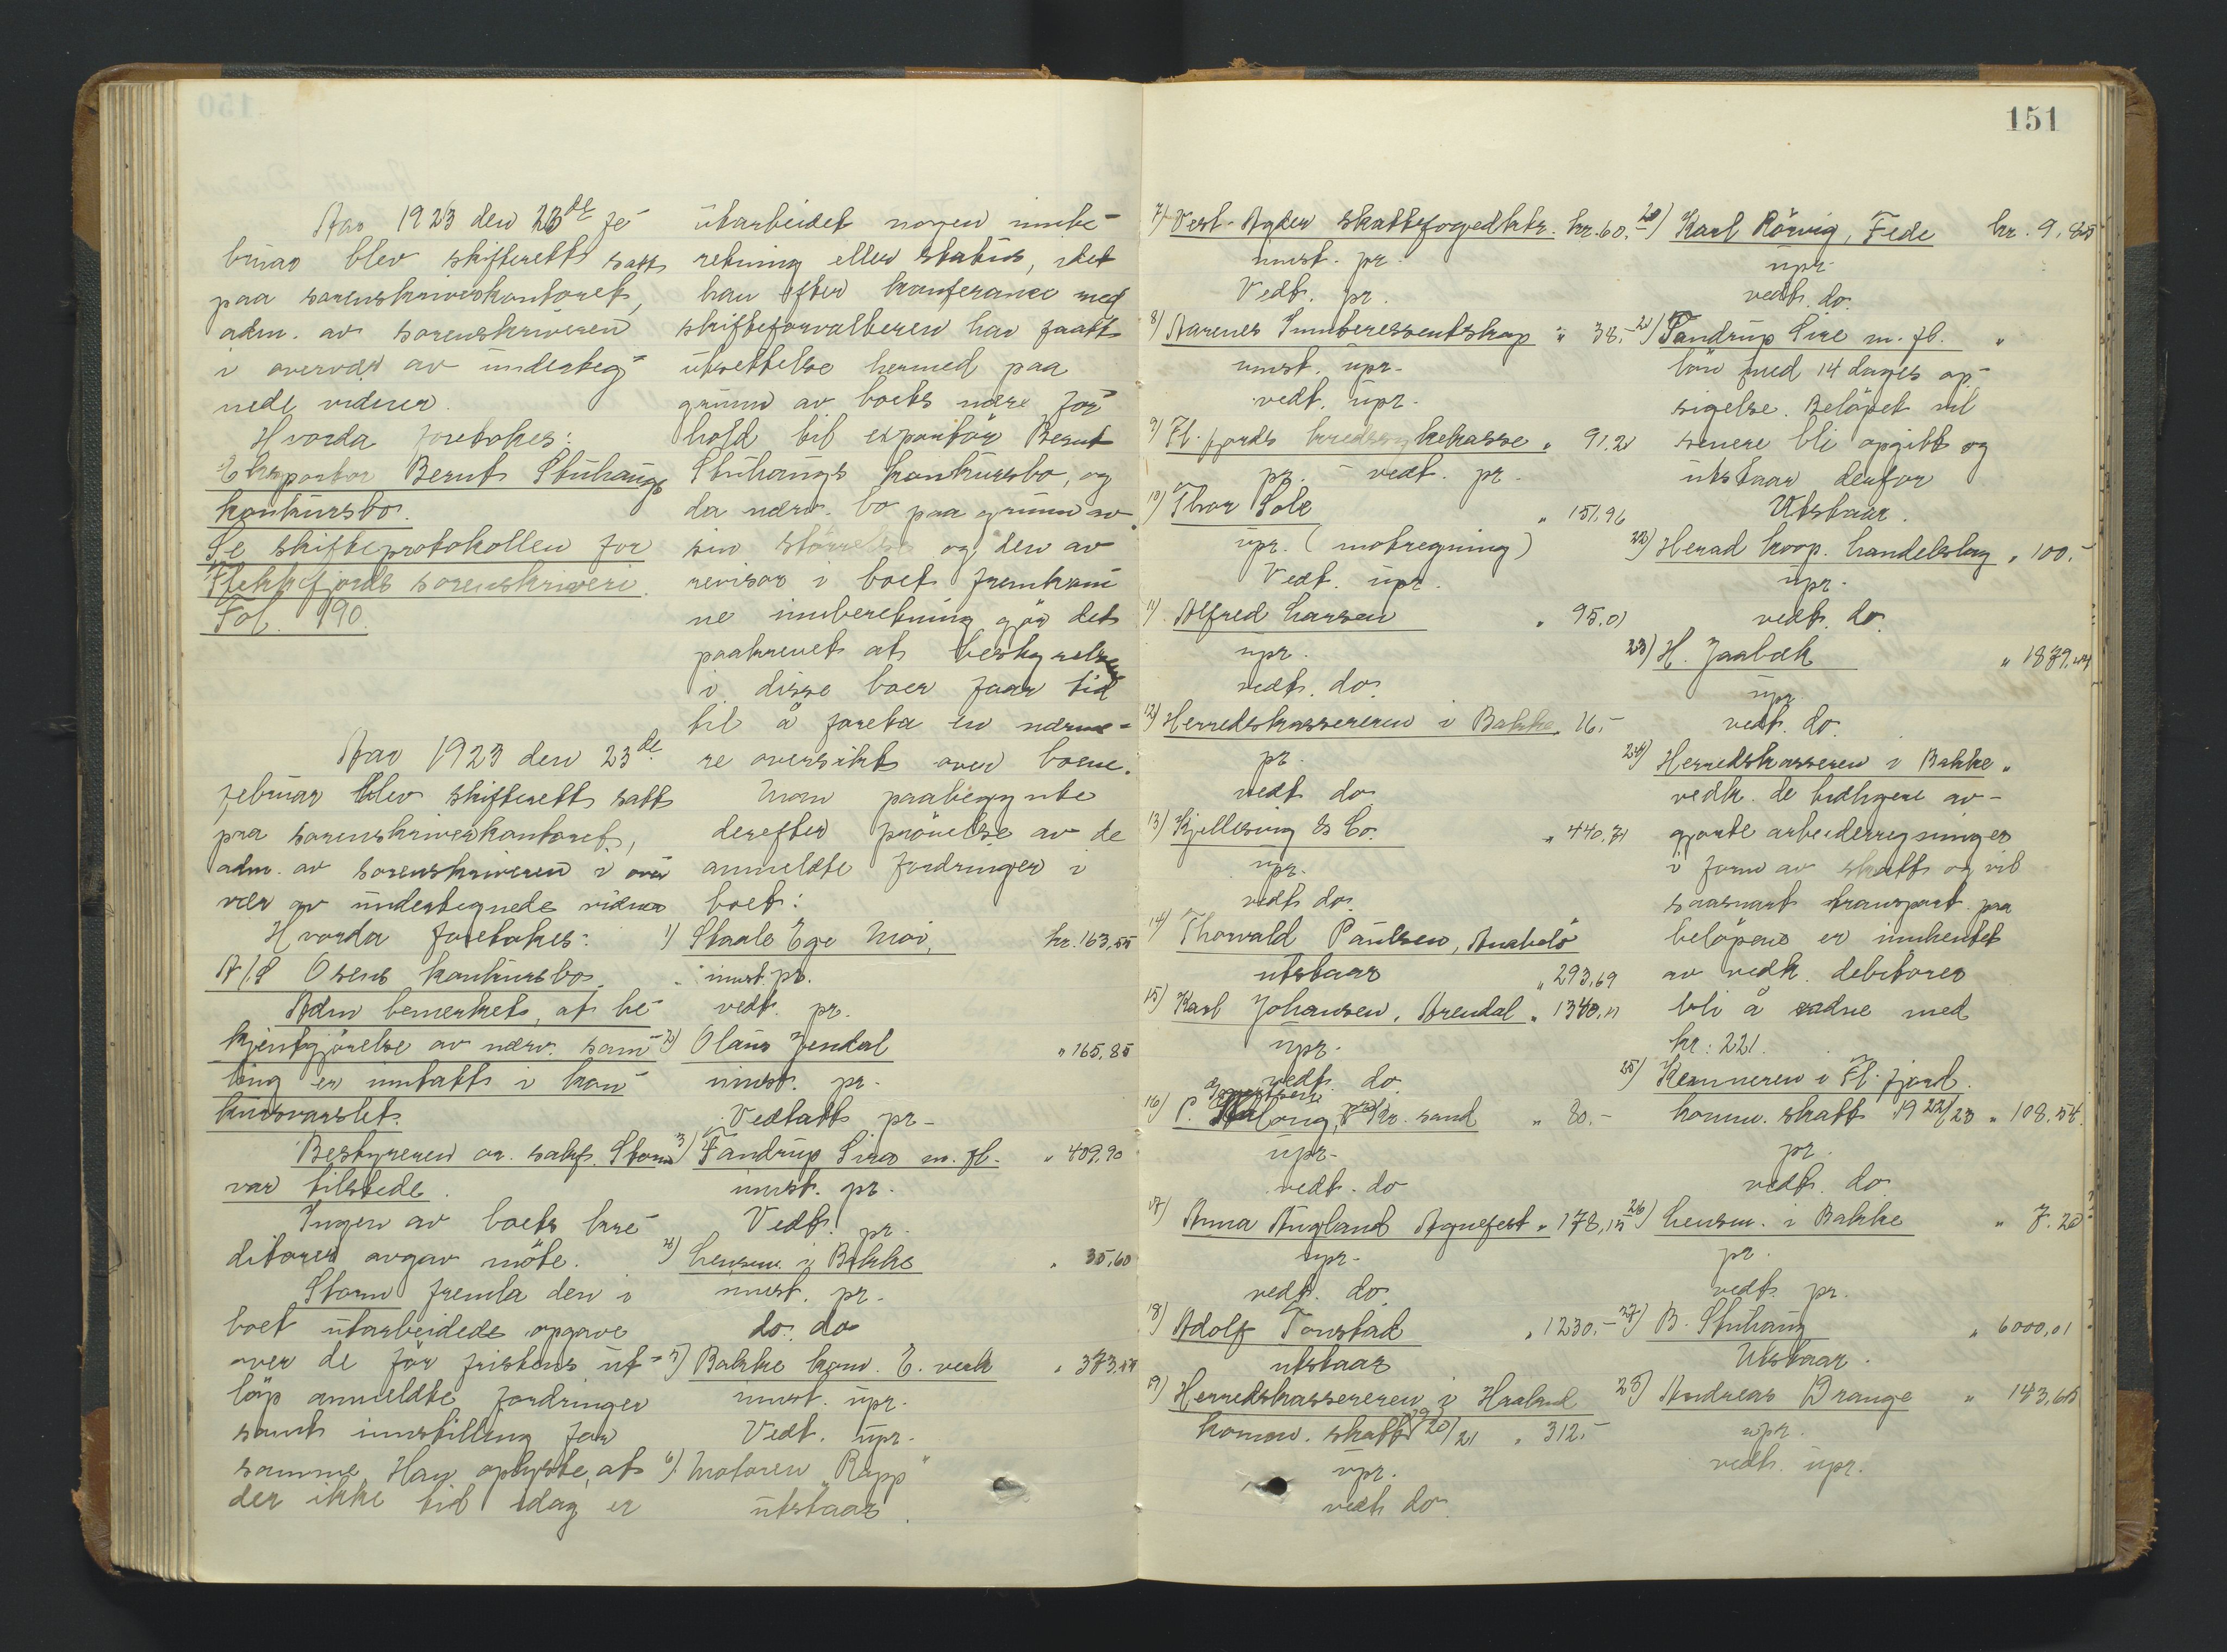 Aar 1923 den 23de fe-
bruar blev skifterett satt
paa sorenskriverkontoret,
adm. av sorenskriveren
i overvær av underteg-
nede vidner.
Hvorda foretokes:
Eksportør Bernt Stuhaugs
konkursbo.
Se skifteprotokollen for
Flekkefjords sorenskriveri.
Fol. 190.
Aar 1923 den 23de
februar blev skifterett satt
paa sorenskriverkontoret,
adm. av sorenskriveren i over
vær av undertegnede vidner
Hvorda foretokes:
A/S Osens konkursbo.
Adm bemerket, at be-
kjentgjørelse av nærv. sam-
ling er inntatt i kon-
kursvarslet.
Bestyreren or. sakf. Storm
var tilstede.
Ingen av boets kre-
ditorer avgav møte.
Storm fremla den i
boet utarbeidede opgave
over de før fristens ut-
løp anmeldte fordringer
samt innstilling for
samme. Han oplyste, at
der ikke til idag er
utarbeidet nogen innbe-
retning eller status, idet
han efter konferance med
skifteforvalteren har faatt
utsettelse hermed paa
grunn av boets nære for-
hold til exportør Bernt
Stuhaugs konkursbo, og
da nærv. bo paa grunn av
sin størrelse og den av
revisor i boet fremkom
ne innberetning gjør det
paakrevet at bestyrelsen
i disse boer faar tid
til å foreta en nærme-
re oversikt over boene.
Man paabegynte
derefter prøvelse av de
anmeldte fordringer i
boet:
1) Staale Ege Moi, kr. 163,55
innst. pr.
vedt. pr.
2) Olaus Jendal " 165,85
innst. pr.
Vedtatt pr.
3) Tandrup Sira m. fl. " 409,90
innst. pr.
Vedt. pr.
4) Lensm. i Bakke " 35,60
innst. pr.
do. do
5) Bakke kom. E. verk " 373,54
innst. upr.
Vedt. upr.
6) Motoren "Rapp"
utstaar.
151
7) Vest-Agder skattefogedktr. kr. 60.-
innst. pr.
Vedt. pr.
8) Aarenes Innteressentskap " 38.-
innst. upr.
vedt. upr.
9) Fl.fjords kredssykekasse " 91,21
pr. - vedt. pr.
10) Thor Sole " 151,96
upr. (motregning)
Vedt. upr.
11) Alfred Larsen " 95,01
upr.
vedt. do.
12) Herredskassereren i Bakke " 16.-
pr.
vedt do
13) Kjellesvig & Co. " 440,71
upr.
vedt do.
14) Thorvald Paulsen,
utstaar " 293,69
15) Karl Johansen, Arendal " 1340,11
upr.
vedt. do
16) P. Kr. sand " 80.-
upr.
vedt. do
17) Anna Augland Agnefest " 178,15
upr.
vedt. do
18) Adolf Tonstad " 1230.-
utstaar
19) Herredskassereren i Haaland
komm. skatt 1920/21 " 312.-
upr.
vedt do
20) Karl Rörvig, Fede kr. 9,85
upr.
vedt. do.
21) Tandrup Sire m. fl. "
løn med 14 dages op-
sigelse. Beløpet vil
senere bli opgitt og
utstaar derfor
Utstaar.
22) Herad koop. handelslag " 100.-
upr.
vedt. do.
23) H. Jaabæk " 1879,44
upr
vedt. do.
24) Herredskasseren i Bakke "
vedk. de tidligere av-
gjorte arbeiderregninger
i form av skatt og vil
saasnart transport paa
beløpene er innhentet
av vedk. debitorer
bli å endre med
kr. 221.
25) Kemneren i Fl.fjord.
komm. skatt 1922/23 " 108,54.
pr.
vedt. do
26) Lensm. i Bakke " 7.20
pr.
vedt. pr.
27) B. Stuhaug " 6000,01
Utstaar.
28) Andreas Drange " 143,65
upr.
vedt. upr.